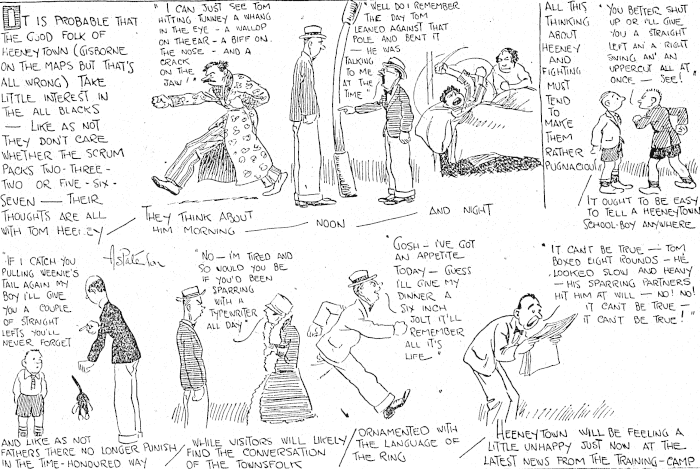 IT IS PROBABLE THAT
THE GOOD FOLK OF
HEENEYTOWN (GISBORNE
ON THE MAPS BUT THAT'S
ALL WRONG) TAKE
LITTLE INTEREST IN
THE ALL BLACKS
— LIKE AS NOT
THEY DON'T CARE
WHETHER THE SCRUM
PACKS TWO-THREE-
TWO OR FIVE-SIX-
SEVEN — THEIR
THOUGHTS ARE ALL
WITH TOM HEENEY
"I CAN JUST SEE TOM
HITTING TUNNEY A WHANG
IN THE EYE - A WALLOP
ON THE EAR - A BIFF ON
THE NOSE - AND A
CRACK
ON THE
JAW!"
THEY THINK ABOUT
HIM MORNING —
"WELL DO I REMEMBER
THE DAY TOM
LEANED AGAINST THAT
POLE AND BENT IT
— HE WAS
TALKING
TO ME
AT THE
TIME"
NOON —
AND NIGHT
ALL THIS
THINKING
ABOUT
HEENEY
AND
FIGHTING
MUST
TEND
TO
MAKE
THEM
RATHER
PUGNACIOUS
"YOU BETTER SHUT
UP OR I'LL GIVE
YOU A STRAIGHT
LEFT AN' A RIGHT
SWING AN' AN
UPPERCUT ALL AT
ONCE — SEE!"
IT OUGHT TO BE EASY
TO TELL A HEENEYTOWN
SCHOOL-BOY ANYWHERE
"IF I CATCH YOU
PULLING WEENIE'S
TAIL AGAIN MY
BOY I'LL GIVE
YOU A COUPLE
OF STRAIGHT
LEFTS YOU'LL
NEVER FORGET
AND LIKE AS NOT
FATHERS THERE NO LONGER PUNISH
IN THE TIME-HONOURED WAY
"NO — I'M TIRED AND
SO WOULD YOU BE
IF YOU'D BEEN
SPARRING
WITH A
TYPEWRITER
ALL DAY"
WHILE VISITORS WILL LIKELY
FIND THE CONVERSATION
OF THE TOWNSFOLK
"GOSH — I'VE GOT
AN APPETITE
TODAY — GUESS
I'LL GIVE MY
DINNER A
SIX INCH
JOLT IT'LL
REMEMBER
ALL IT'S
LIFE"
ORNAMENTED WITH
THE LANGUAGE OF
THE RING
"IT CAN'T BE TRUE — TOM
BOXED EIGHT ROUNDS — HE
LOOKED SLOW AND HEAVY
— HIS SPARRING PARTNERS
HIT HIM AT WILL — NO! NO!
IT CAN'T BE TRUE —
IT CAN'T BE TRUE!"
HEENEYTOWN WILL BE FEELING A
LITTLE UNHAPPY JUST NOW AT THE
LATEST NEWS FROM THE TRAINING-CAMP